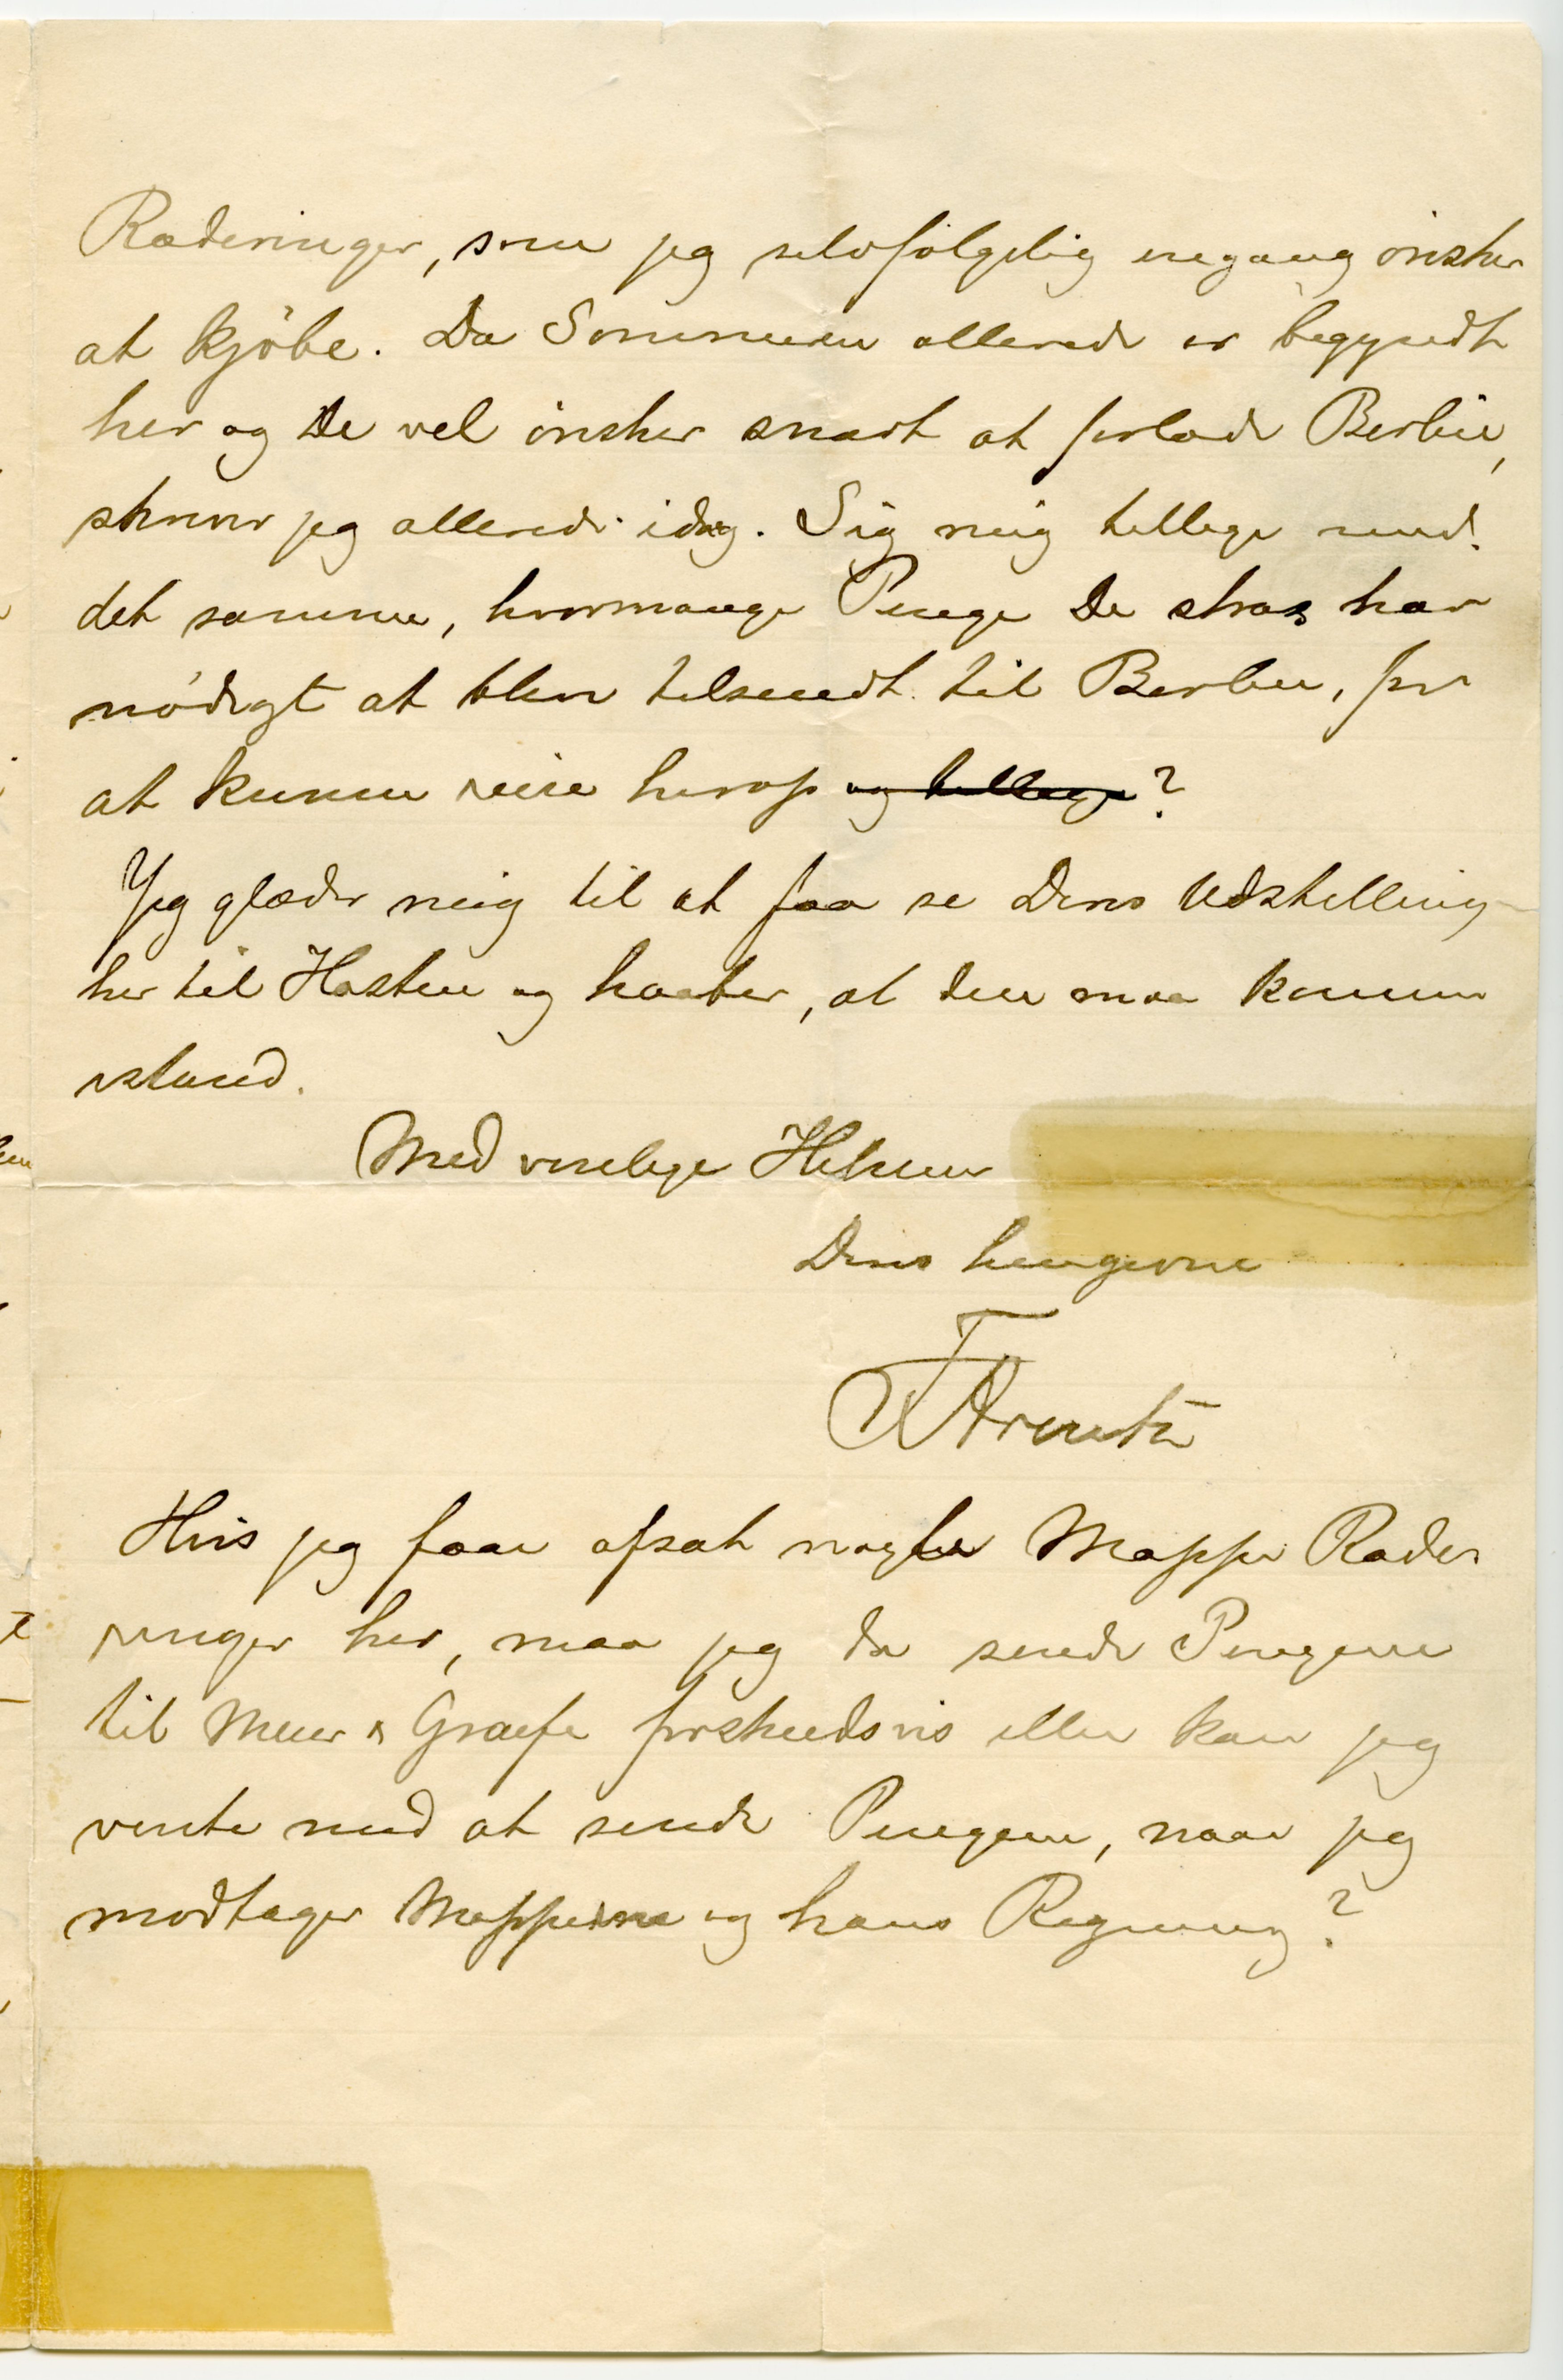 Raderinger, som jeg selvfølgelig engang ønsker
at kjøbe. Da Sommeren allerede er begyndt
her og De vel ønsker snart at forlade Berlin,
skriver jeg allerede idag. Sig mig tillige med
det samme, hvormange Penge De strax har
nødigt at blive tilsendt til Berlin, for
at kunne reise herop og tillige?
Jeg glæder mig til at faa se Deres Udstilling
her til Høsten og haaber, at den maa komme
istand.
Med venlige Hilsener
Deres hengivne
F Arentz
Hvis jeg faar afsat nogle Mapper Rade-
ringer her, maa jeg da sende Pengene
til Meier Graefe forskudsvis eller kan jeg
vente med at sende Pengene, naar jeg
modtager Mapperne og hans Regning?